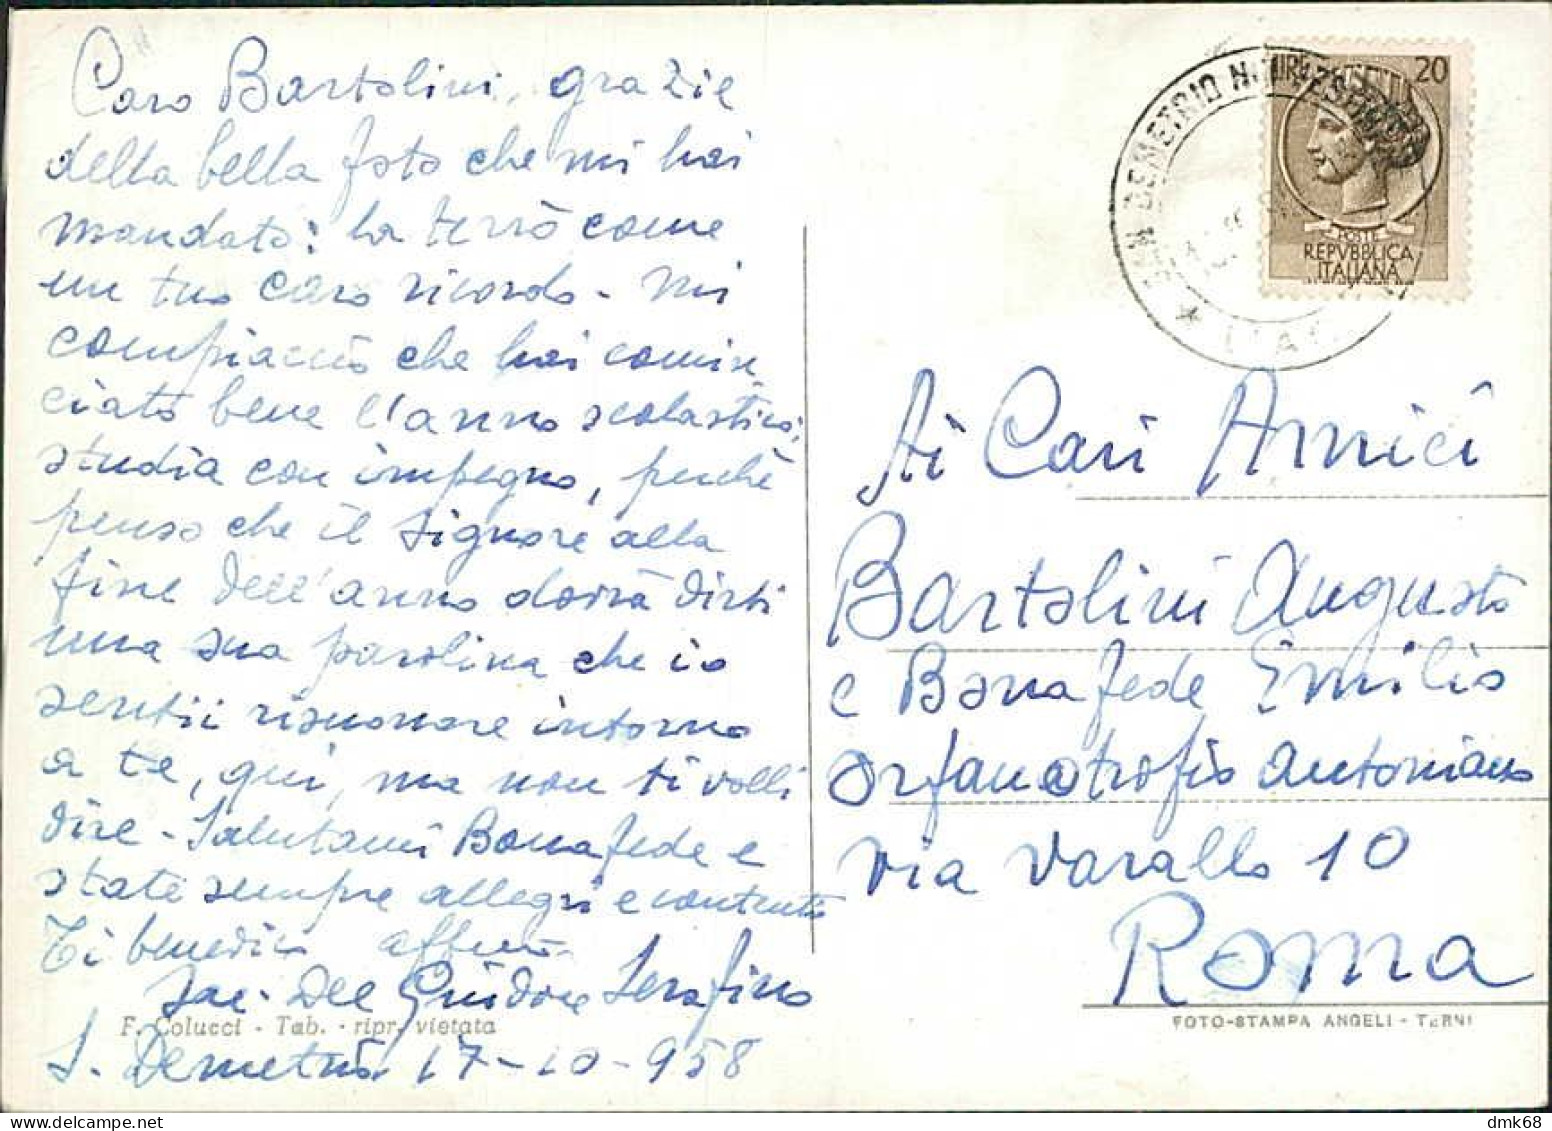 Caro Bartolini, grazie
della bella foto che mi hai
mandato: la terrò come
un tuo caro ricordo - mi
compiaccio che hai comin-
ciato bene l'anno scolastico,
studia con impegno, perchè
penso che il Signore alla
fine dell'anno dovrà dirti
una sua parolina che io
sentii risuonare intorno
a te, qui, ma non ti volli
dire - Salutami Bonafede e
state sempre allegri e contenti
Ti benedico affmo
Sac. Del Guidone Serafino
F. Colucci - Tab. - ripr. vietata
S. Demetrio 17-10-958
SAN DEMETRIO
20
POSTE
REPVBBLICA
ITALIANA
Ai Cari Amici
Bartolini Augusto
e Bonafede Emilio
orfanotrofio antoniano
via Varallo 10
Roma
FOTO-STAMPA ANGELI - TERNI
dmk68